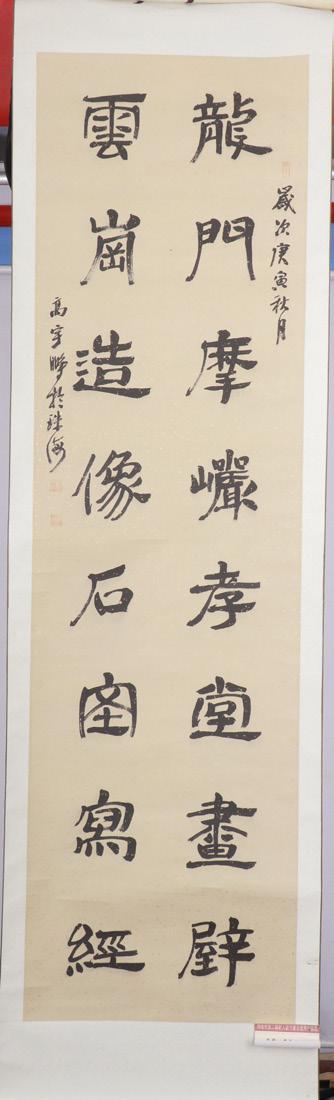 歲次庚寅秋月
龍門摩巗孝堂畫壁
雲崗造像石室寫經
高宇鵬於珠海